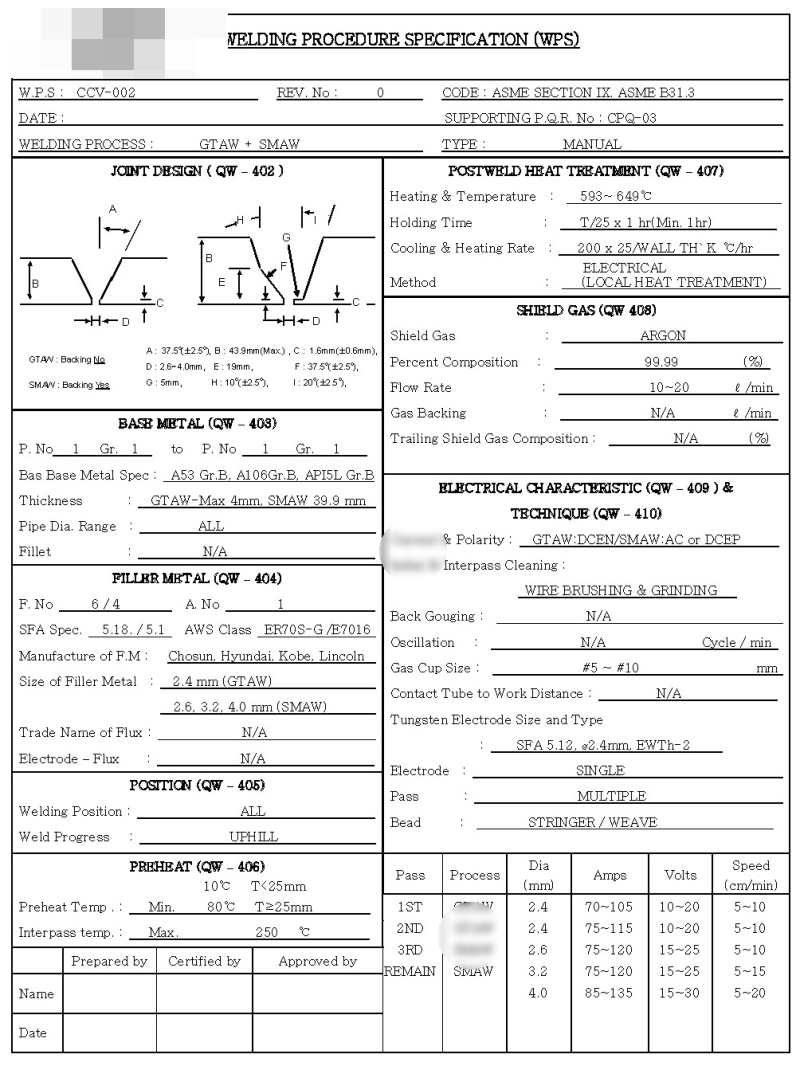 WELDING PROCEDURE SPECIFICATION (WPS)
W.P.S : CCV-002 REV. No : 0 CODE : ASME SECTION IX. ASME B31.3
DATE : SUPPORTING P.Q.R. No : CPQ-03
WELDING PROCESS : GTAW + SMAW TYPE : MANUAL
JOINT DESIGN ( QW - 402 )
A
B
C
D
H
I
G
B
F
E
C
D
GTAW : Backing No
SMAW : Backing Yes
A : 37.5°(±2.5°), B : 43.9mm(Max.) , C : 1.6mm(±0.6mm),
D : 2.6~4.0mm, E : 19mm, F : 37.5°(±2.5°),
G : 5mm, H : 10°(±2.5°), I : 20°(±2.5°),
BASE METAL (QW - 403)
P. No 1 Gr. 1 to P. No 1 Gr. 1
Bas Base Metal Spec : A53 Gr.B, A106Gr.B, API5L Gr.B
Thickness : GTAW-Max 4mm, SMAW 39.9 mm
Pipe Dia. Range : ALL
Fillet : N/A
FILLER METAL (QW - 404)
F. No 6 / 4 A. No 1
SFA Spec. 5.18. / 5.1 AWS Class ER70S-G /E7016
Manufacture of F.M : Chosun, Hyundai, Kobe, Lincoln
Size of Filler Metal : 2.4 mm (GTAW)
2.6, 3.2, 4.0 mm (SMAW)
Trade Name of Flux : N/A
Electrode - Flux : N/A
POSITION (QW - 405)
Welding Position : ALL
Weld Progress : UPHILL
PREHEAT (QW - 406)
10℃ T<25mm
Preheat Temp . : Min. 80℃ T≥25mm
Interpass temp. : Max. 250 ℃
Prepared by Certified by Approved by
Name
Date
POSTWELD HEAT TREATMENT (QW - 407)
Heating & Temperature : 593~ 649℃
Holding Time : T/25 x 1 hr(Min. 1hr)
Cooling & Heating Rate : 200 x 25/WALL TH`K ℃/hr
ELECTRICAL
Method : (LOCAL HEAT TREATMENT)
SHIELD GAS (QW 408)
Shield Gas : ARGON
Percent Composition : 99.99 (%)
Flow Rate : 10~20 ℓ /min
Gas Backing : N/A ℓ /min
Trailing Shield Gas Composition : N/A (%)
ELECTRICAL CHARACTERISTIC (QW - 409 ) &
TECHNIQUE (QW - 410)
& Polarity : GTAW:DCEN/SMAW:AC or DCEP
Interpass Cleaning :
WIRE BRUSHING & GRINDING
Back Gouging : N/A
Oscillation : N/A Cycle / min
Gas Cup Size : #5 ~ #10 mm
Contact Tube to Work Distance : N/A
Tungsten Electrode Size and Type
: SFA 5.12, ø2.4mm, EWTh-2
Electrode : SINGLE
Pass : MULTIPLE
Bead : STRINGER / WEAVE
Pass Process Dia (mm) Amps Volts Speed (cm/min)
1ST 2.4 70~105 10~20 5~10
2ND 2.4 75~115 10~20 5~10
3RD 2.6 75~120 15~25 5~10
REMAIN SMAW 3.2 75~120 15~25 5~15
4.0 85~135 15~30 5~20